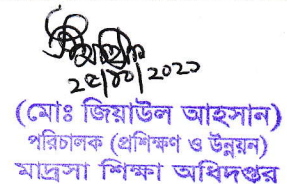 ২৫/১০/২০২১
(মোঃ জিয়াউল আহসান)
পরিচালক (প্রশিক্ষণ ও উন্নয়ন)
মাদ্রাসা শিক্ষা অধিদপ্তর